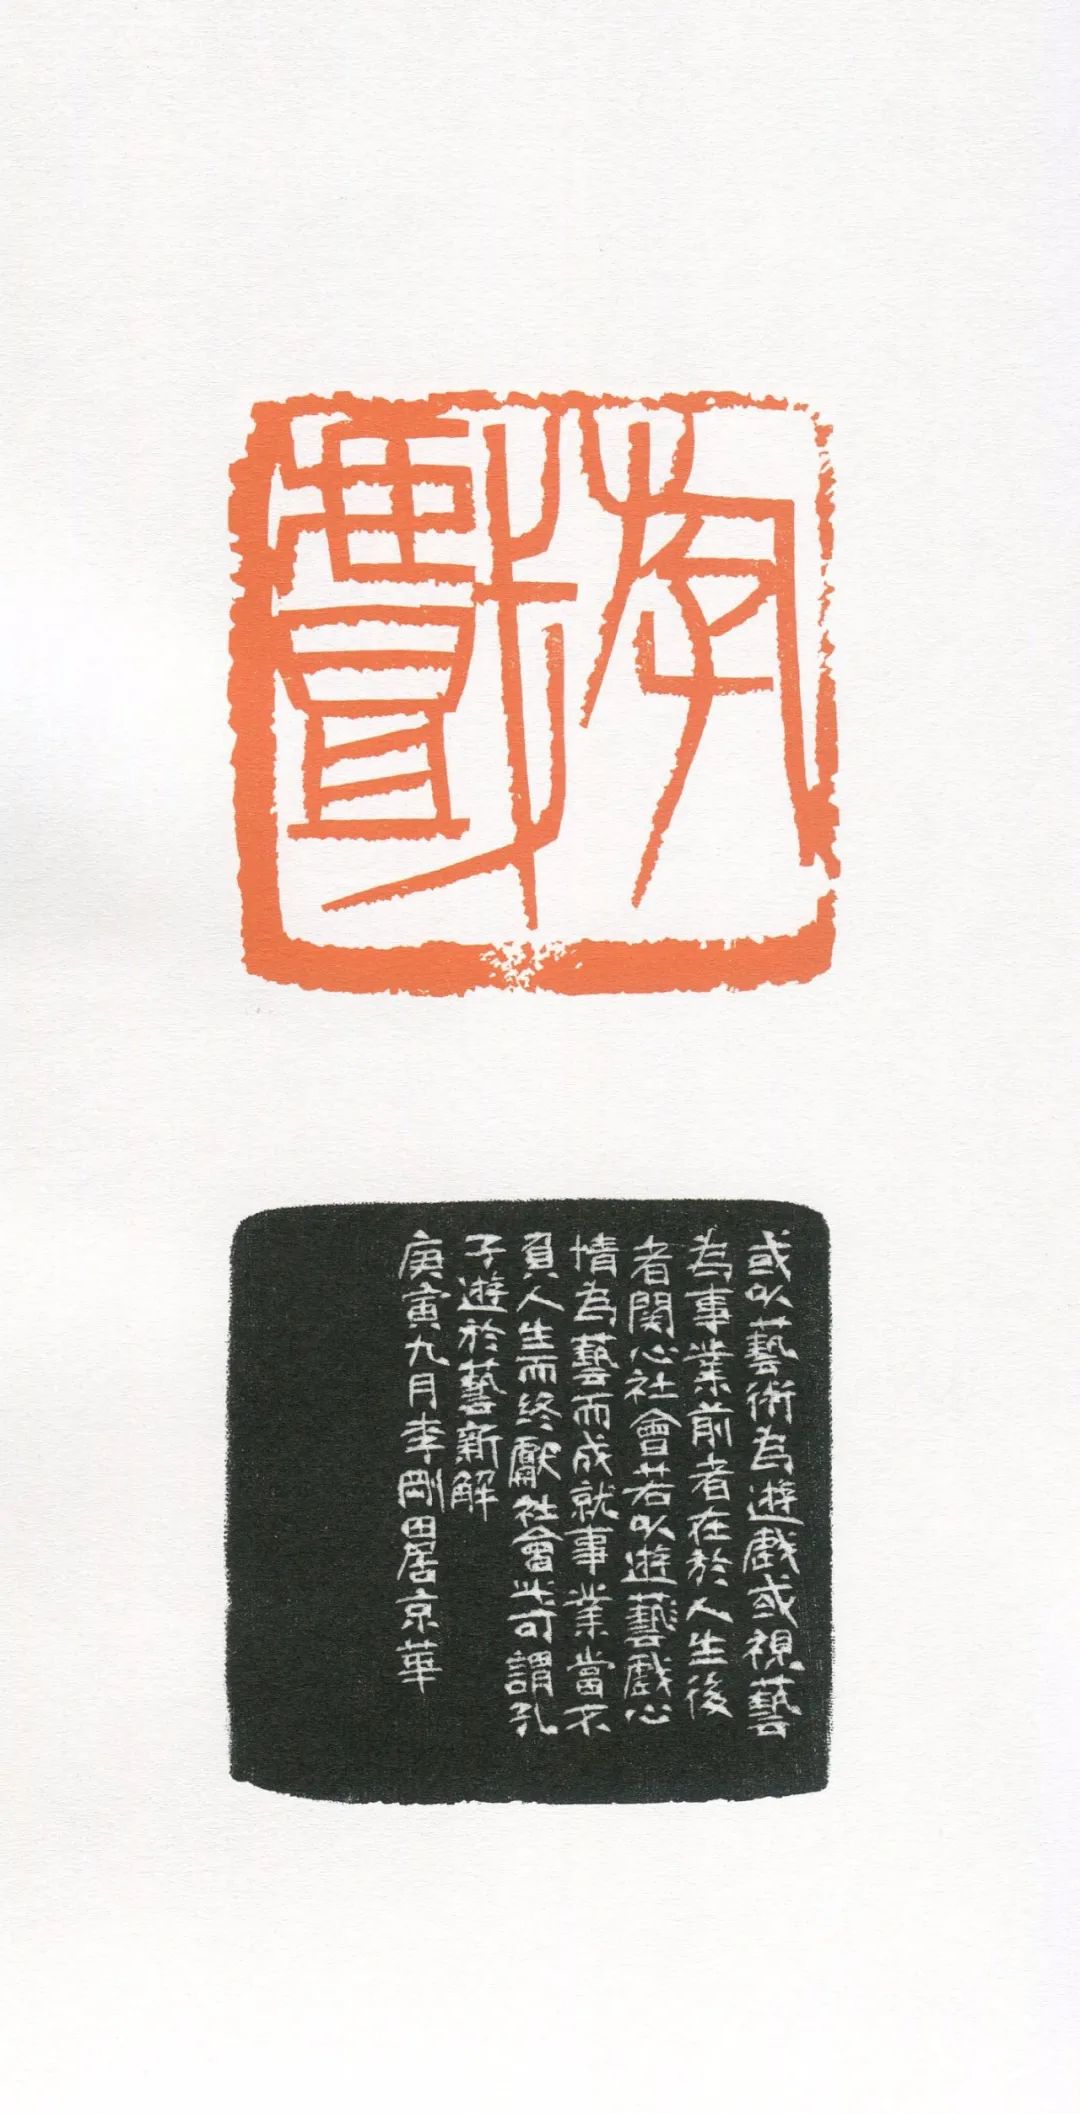 游戲
或以藝術為遊戲或視藝
為事業前者在於人生後
者関心社會若以遊藝戲心
情為藝而成就事業當不
負人生而終獻社會此可謂孔
子遊於藝新解
庚寅九月李剛田居京華